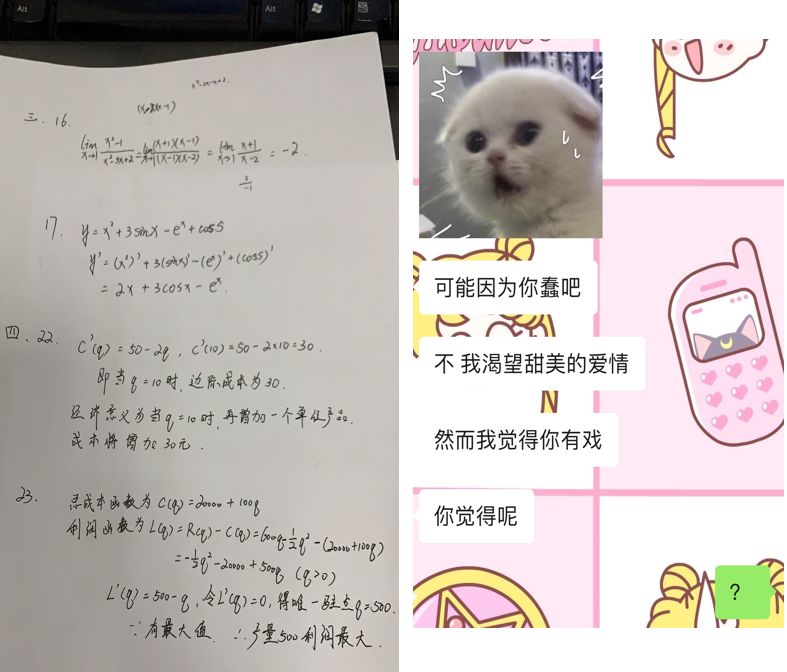 Alt
Alt
x²-2x-x+2
三. 16.
lim x→1 x²-1/x²-3x+2 = lim x→1 (x+1)(x-1)/(x-1)(x-2) = lim x→1 x+1/x-2 = -2.
2/-1
17. y = x² + 3sinx - eˣ + cos5
y' = (x²)' + 3(sinx)' - (eˣ)' + (cos5)'
= 2x + 3cosx - eˣ.
四. 22. C'(q) = 50-2q, C'(10) = 50-2×10=30.
即当q=10时,边际成本为30.
经济意义为当q=10时,再增加一个单位产品.
成本将增加30元.
23. 总成本函数为C(q)=20000+100q
利润函数为L(q)=R(q)-C(q)=600q-½q²-(20000+100q)
=-½q²-20000+500q (q>0)
L'(q)=500-q,令L'(q)=0,得唯一驻点q=500.
∵有最大值 ∴产量500利润最大.
可能因为你蠢吧
不 我渴望甜美的爱情
然而我觉得你有戏
你觉得呢
?